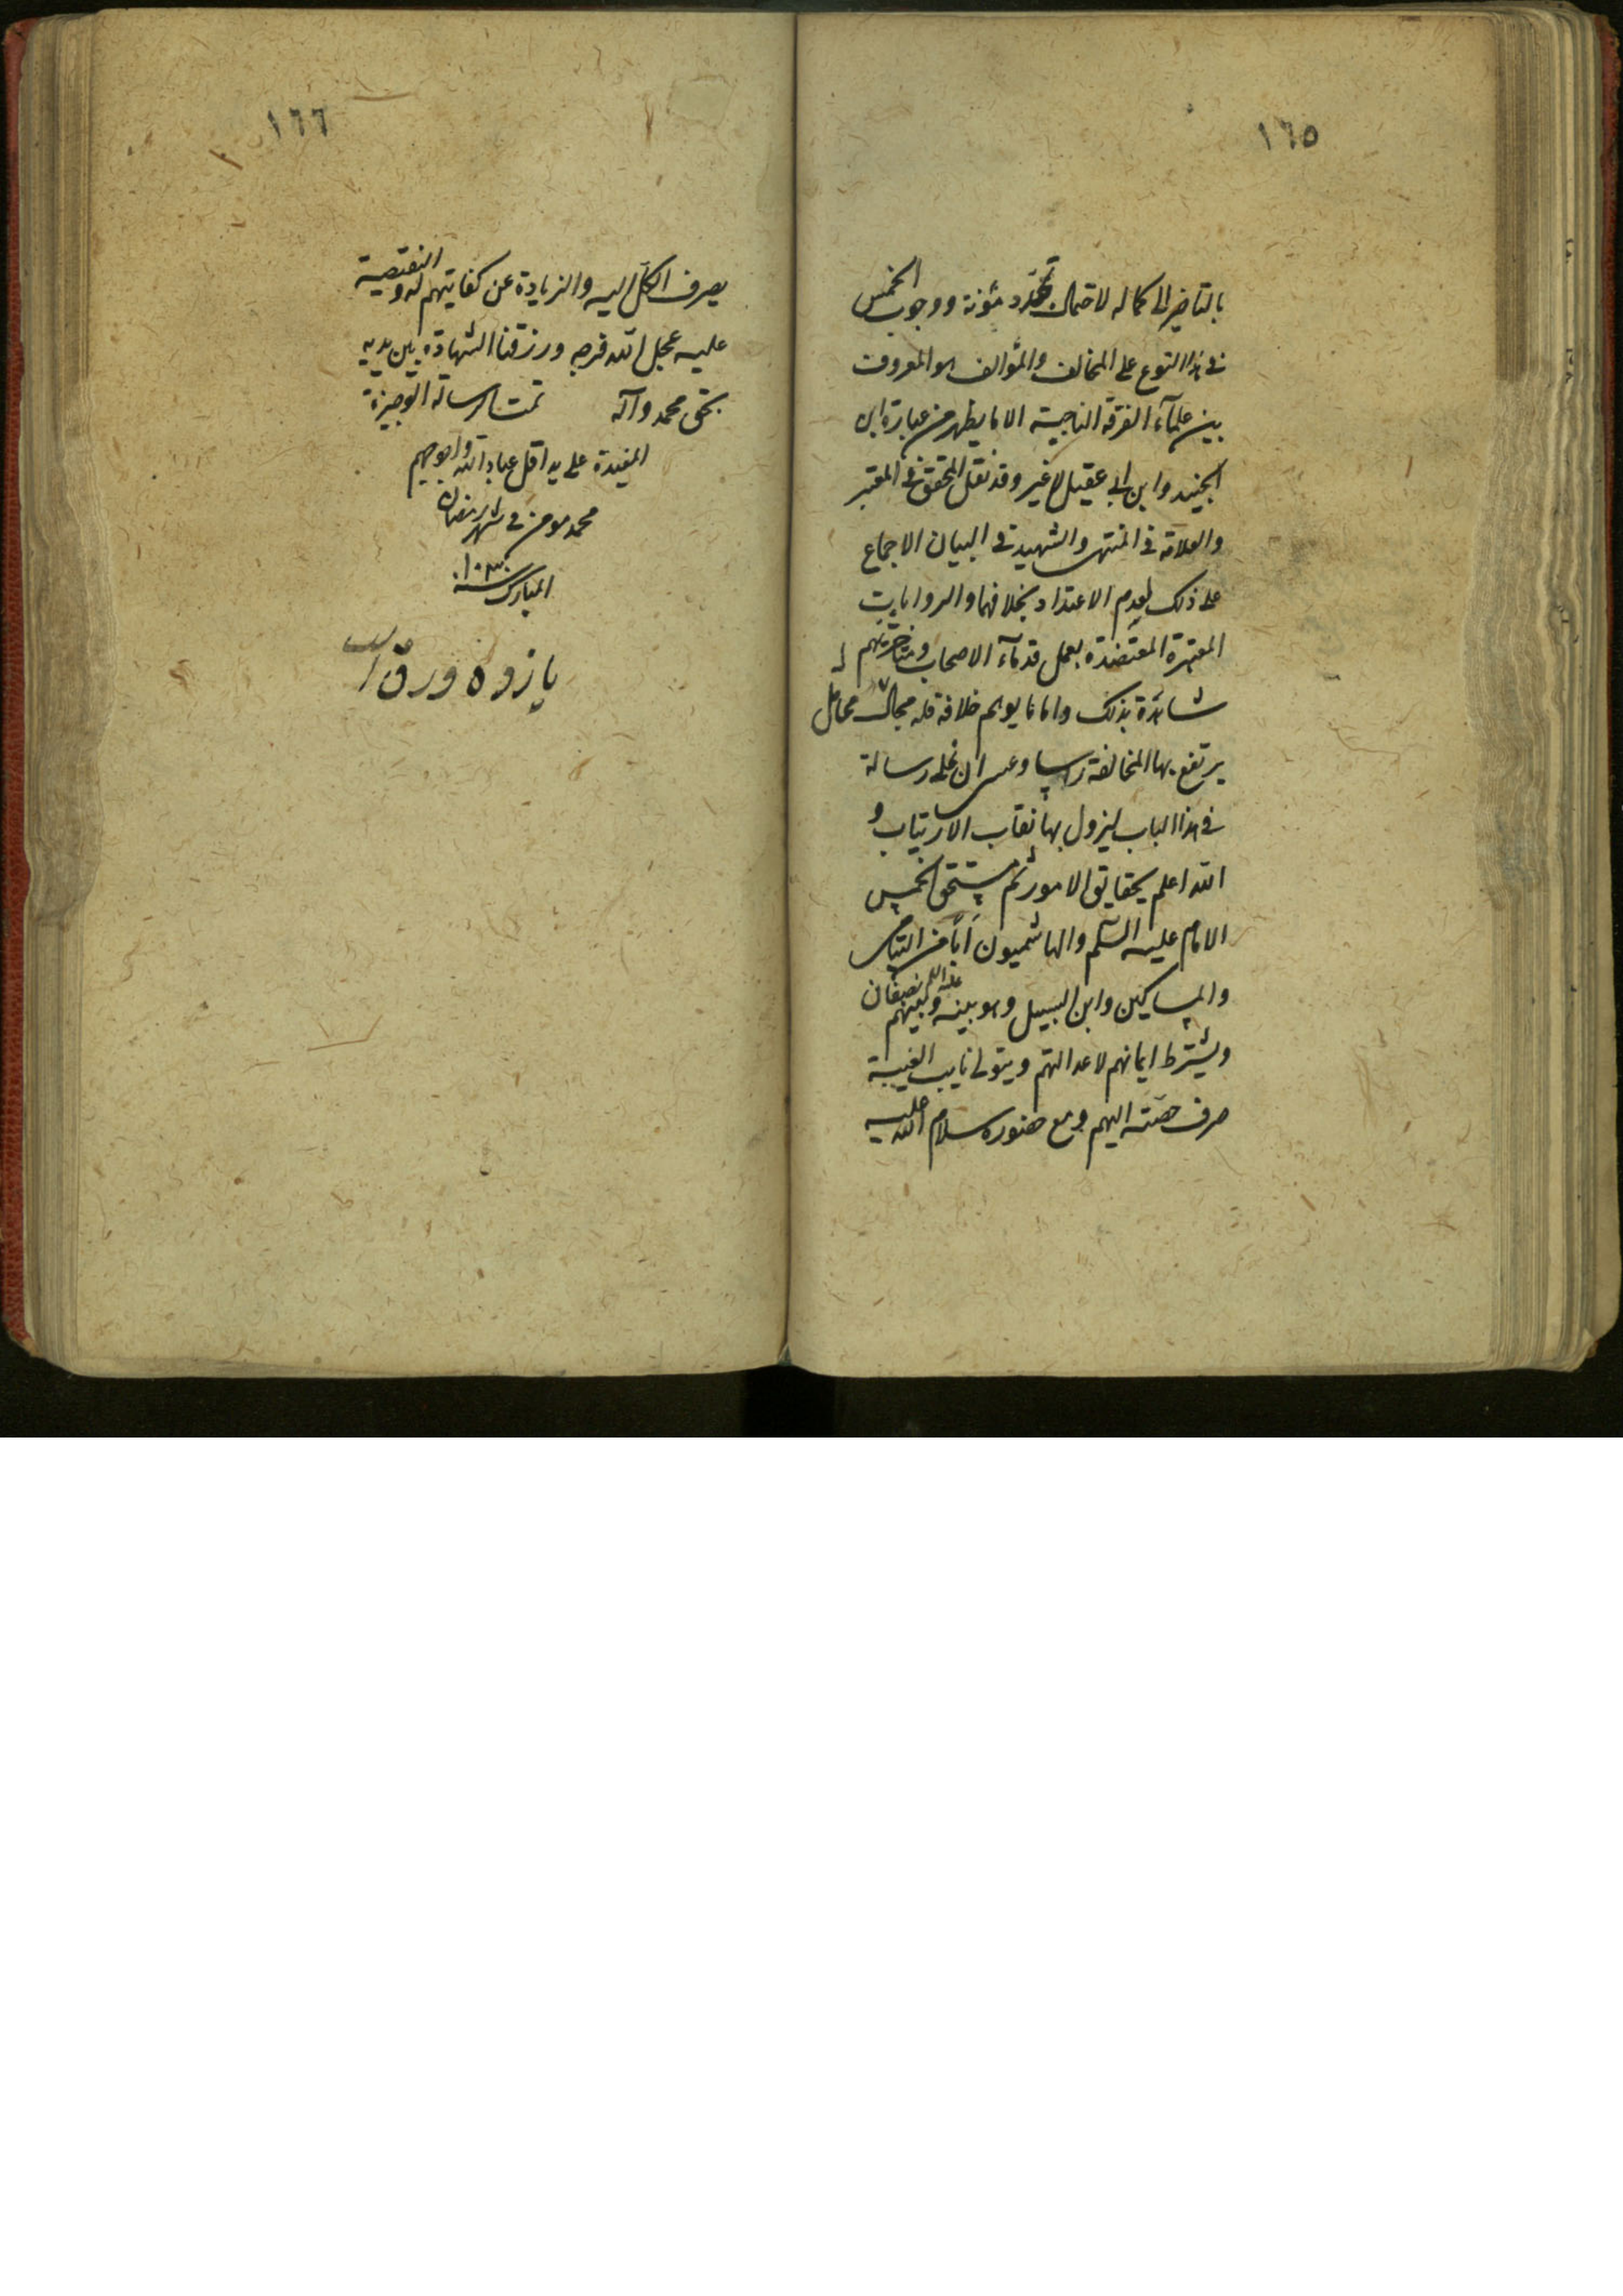 ١٦٥
بالتاخير الى كماله لاحتمال تجدد مئونة ووجوب الخمس
فى هذا النوع على المخالف والمؤالف هو المعروف
بين علمآء الفرقة الناجية الا ما يظهر من عبارة ابن
الجنيد وابن ابى عقيل لا غير وقد نقل المحقق فى المعتبر
والعلامة فى المنتهى والشهيد فى البيان الاجماع
على ذلك لعدم الاعتداد بخلافهما والروايات
المعتبرة المعتضدة بعمل قدمآء الاصحاب ومتاخريهم
شاهدة بذلك واما ما يوهم خلافه فله محامل
يرتفع بها المخالفة راسا وعسى ان نملى رسالة
فى هذا الباب ليزول بها نقاب الارتياب و
الله اعلم بحقايق الامور ثم مستحق الخمس
الامام عليه السلم والهاشميون ابا من اليتامى
والمساكين وابن السبيل وهو بينه عليه السلم وبينهم نصفان
ويشترط ايمانهم لا عدالتهم ويتولى نايب الغيبة
صرف حصته اليهم ومع حضوره سلام الله عليه
١٦٦
يصرف الكل اليه والزيادة عن كفايتهم له والنقيصة
عليه عجل الله فرجه ورزقنا الشهادة بين يديه
بحق محمد وآله تمت الرسالة الوجيزة
المفيدة على يد اقل عباد الله واحوجهم
محمد مومن فى شهر رمضان
المبارك سنة
يازده ورق است